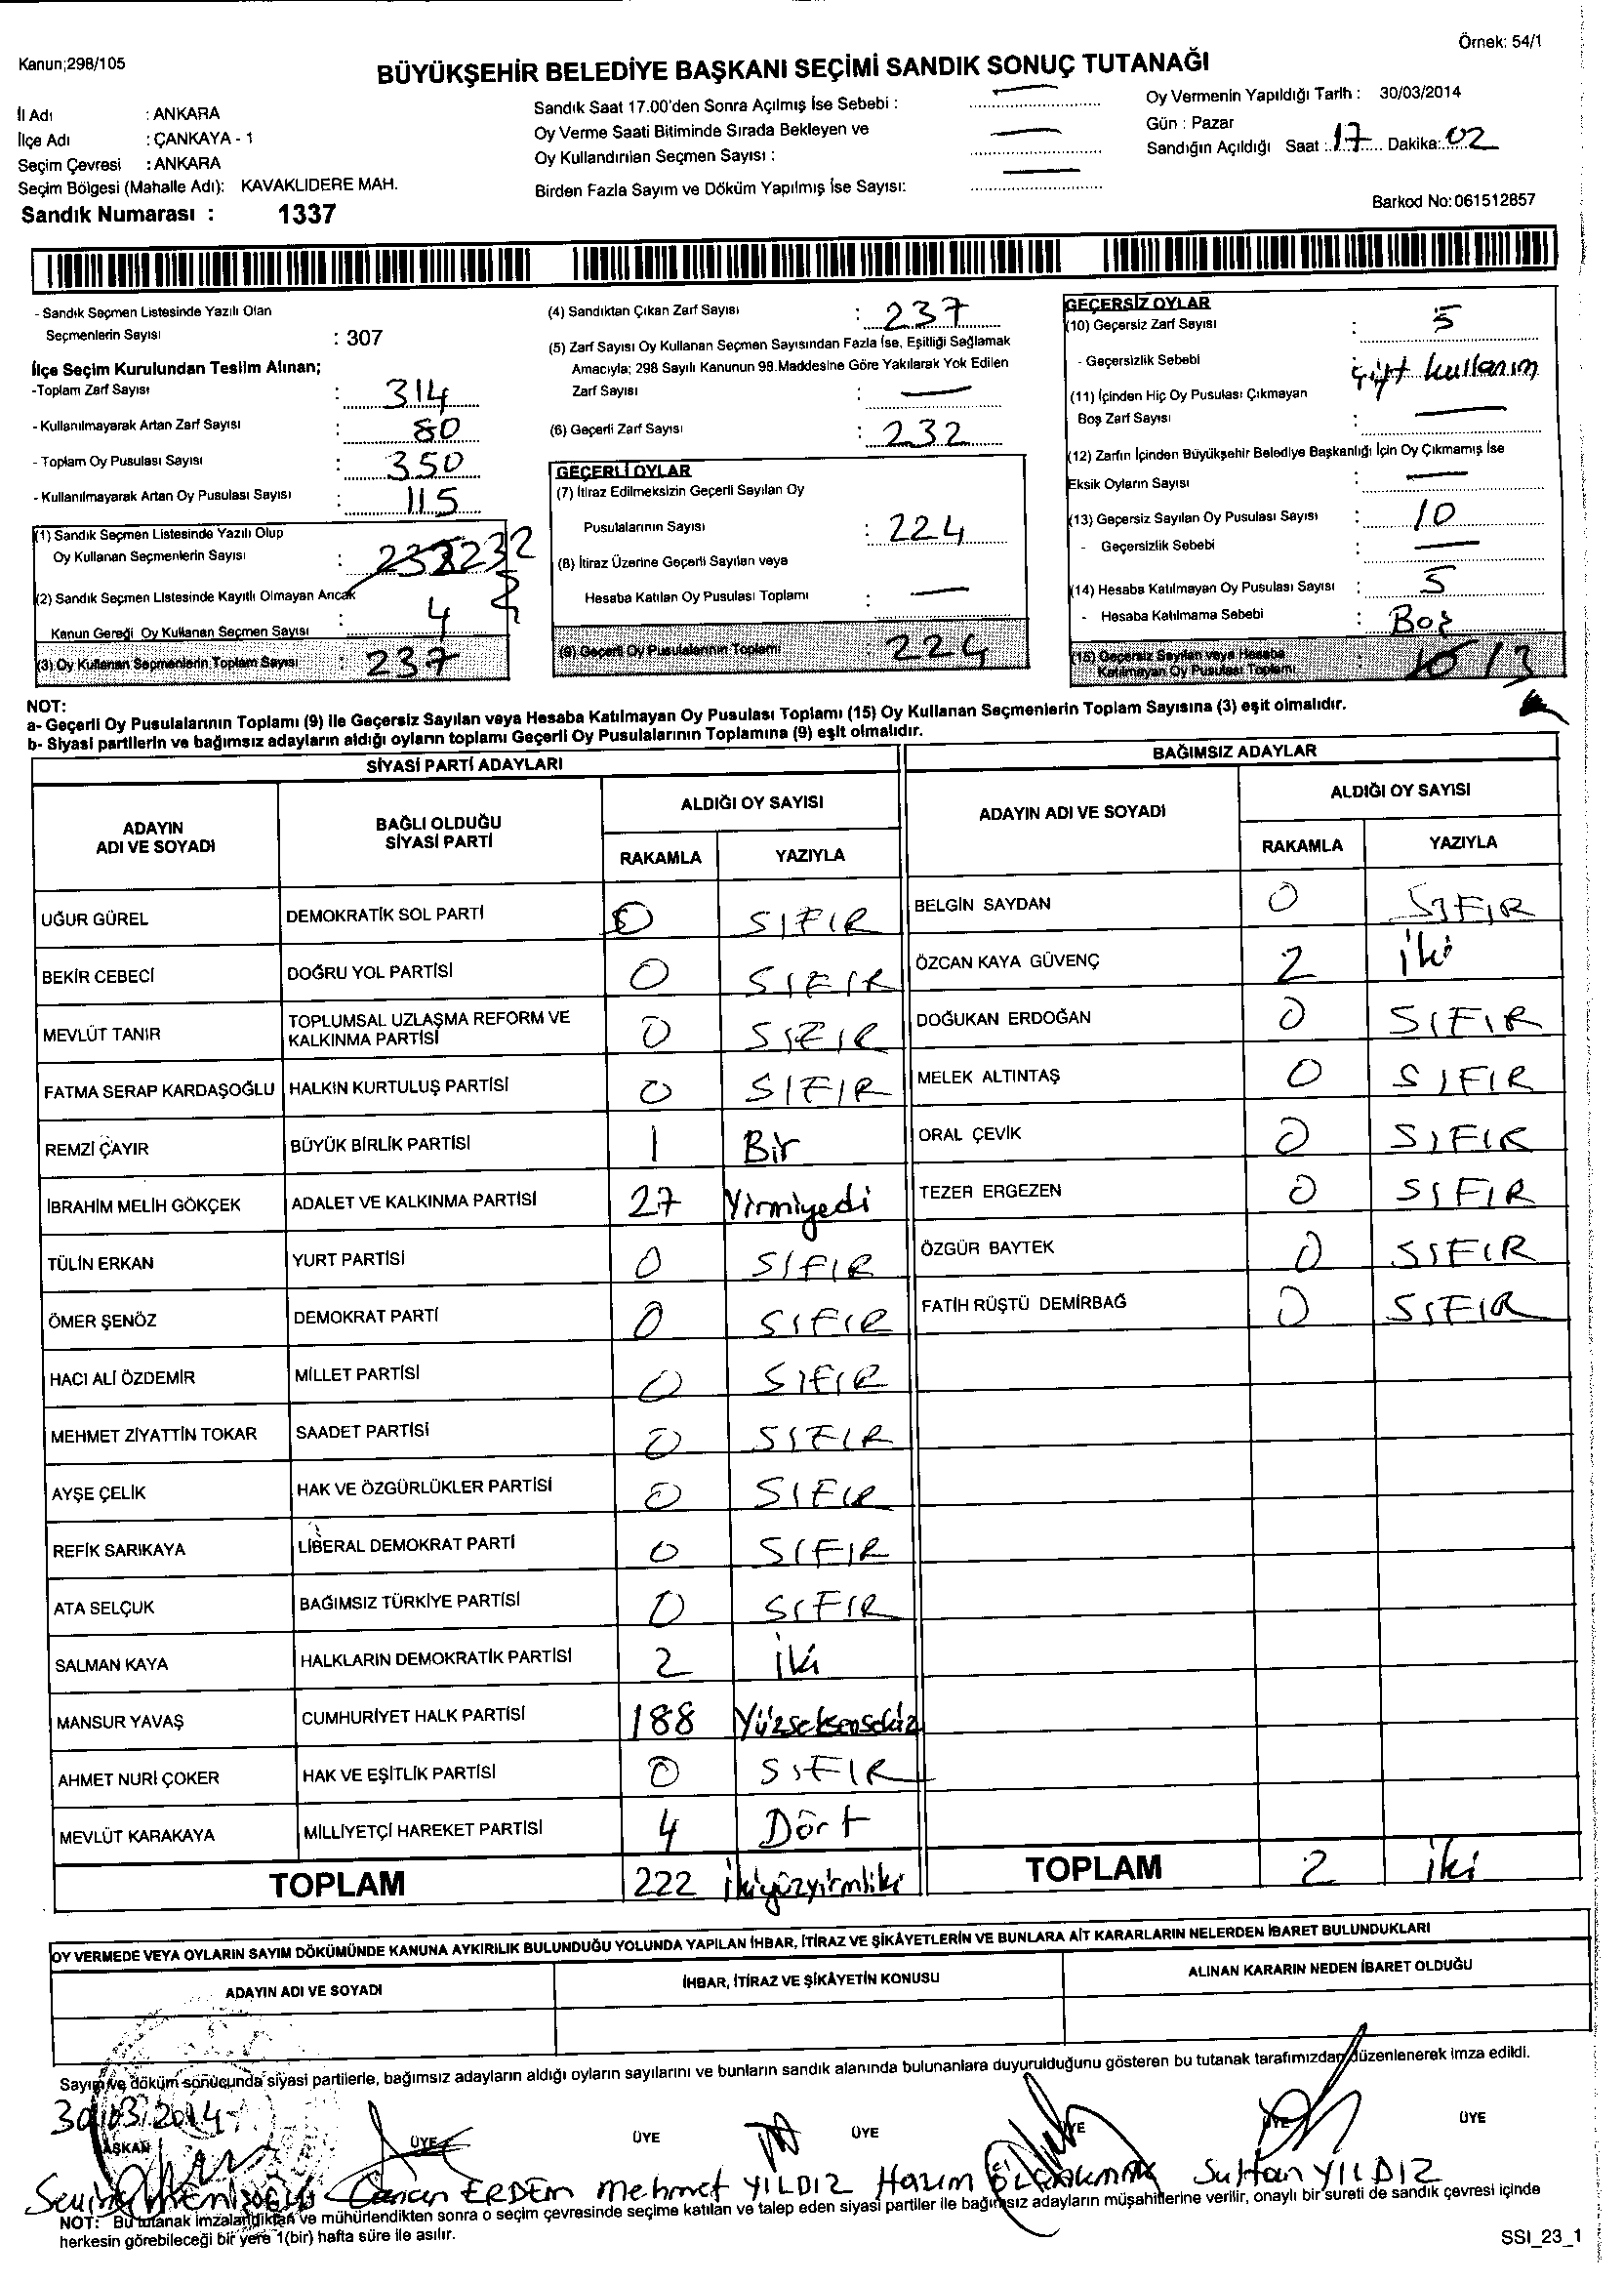 Örnek: 54/1
Kanun;298/105
BÜYÜKŞEHİR BELEDİYE BAŞKANI SEÇİMİ SANDIK SONUÇ TUTANAĞI
İl Adı : ANKARA
İlçe Adı : ÇANKAYA - 1
Seçim Çevresi : ANKARA
Seçim Bölgesi (Mahalle Adı): KAVAKLIDERE MAH.
Sandık Numarası : 1337
Sandık Saat 17.00'den Sonra Açılmış İse Sebebi : —
Oy Verme Saati Bitiminde Sırada Bekleyen ve
Oy Kullandırılan Seçmen Sayısı : —
Birden Fazla Sayım ve Döküm Yapılmış İse Sayısı: —
Oy Vermenin Yapıldığı Tarih : 30/03/2014
Gün : Pazar
Sandığın Açıldığı Saat : 17 Dakika: 02
Barkod No: 061512857
- Sandık Seçmen Listesinde Yazılı Olan
Seçmenlerin Sayısı : 307
İlçe Seçim Kurulundan Teslim Alınan;
-Toplam Zarf Sayısı : 314
- Kullanılmayarak Artan Zarf Sayısı : 80
- Toplam Oy Pusulası Sayısı : 350
- Kullanılmayarak Artan Oy Pusulası Sayısı : 115
(1) Sandık Seçmen Listesinde Yazılı Olup
Oy Kullanan Seçmenlerin Sayısı : 232
(2) Sandık Seçmen Listesinde Kayıtlı Olmayan Ancak
Kanun Gereği Oy Kullanan Seçmen Sayısı : 4
(3) Oy Kullanan Seçmenlerin Toplam Sayısı : 237
(4) Sandıktan Çıkan Zarf Sayısı : 237
(5) Zarf Sayısı Oy Kullanan Seçmen Sayısından Fazla İse, Eşitliği Sağlamak
Amacıyla; 298 Sayılı Kanunun 98.Maddesine Göre Yakılarak Yok Edilen
Zarf Sayısı : —
(6) Geçerli Zarf Sayısı : 232
GEÇERLİ OYLAR
(7) İtiraz Edilmeksizin Geçerli Sayılan Oy
Pusulalarının Sayısı : 224
(8) İtiraz Üzerine Geçerli Sayılan veya
Hesaba Katılan Oy Pusulası Toplamı : —
(9) Geçerli Oy Pusulalarının Toplamı : 224
GEÇERSİZ OYLAR
(10) Geçersiz Zarf Sayısı : 5
- Geçersizlik Sebebi : Çift kullanım
(11) İçinden Hiç Oy Pusulası Çıkmayan
Boş Zarf Sayısı : —
(12) Zarfın İçinden Büyükşehir Belediye Başkanlığı İçin Oy Çıkmamış İse
Eksik Oyların Sayısı : —
(13) Geçersiz Sayılan Oy Pusulası Sayısı : 10
- Geçersizlik Sebebi : —
(14) Hesaba Katılmayan Oy Pusulası Sayısı : 5
- Hesaba Katılmama Sebebi : Boş
(15) Geçersiz Sayılan veya Hesaba
Katılmayan Oy Pusulası Toplamı : 13
NOT:
a- Geçerli Oy Pusulalarının Toplamı (9) ile Geçersiz Sayılan veya Hesaba Katılmayan Oy Pusulası Toplamı (15) Oy Kullanan Seçmenlerin Toplam Sayısına (3) eşit olmalıdır.
b- Siyasi partilerin ve bağımsız adayların aldığı oyların toplamı Geçerli Oy Pusulalarının Toplamına (9) eşit olmalıdır.
SİYASİ PARTİ ADAYLARI
ADAYIN ADI VE SOYADI BAĞLI OLDUĞU SİYASİ PARTİ ALDIĞI OY SAYISI
RAKAMLA YAZIYLA
UĞUR GÜREL DEMOKRATİK SOL PARTİ 0 SIFIR
BEKİR CEBECİ DOĞRU YOL PARTİSİ 0 SIFIR
MEVLÜT TANIR TOPLUMSAL UZLAŞMA REFORM VE KALKINMA PARTİSİ 0 SIFIR
FATMA SERAP KARDAŞOĞLU HALKIN KURTULUŞ PARTİSİ 0 SIFIR
REMZİ ÇAYIR BÜYÜK BİRLİK PARTİSİ 1 Bir
İBRAHİM MELİH GÖKÇEK ADALET VE KALKINMA PARTİSİ 27 Yirmiyedi
TÜLİN ERKAN YURT PARTİSİ 0 SIFIR
ÖMER ŞENÖZ DEMOKRAT PARTİ 0 SIFIR
HACI ALİ ÖZDEMİR MİLLET PARTİSİ 0 SIFIR
MEHMET ZİYATTİN TOKAR SAADET PARTİSİ 0 SIFIR
AYŞE ÇELİK HAK VE ÖZGÜRLÜKLER PARTİSİ 0 SIFIR
REFİK SARIKAYA LİBERAL DEMOKRAT PARTİ 0 SIFIR
ATA SELÇUK BAĞIMSIZ TÜRKİYE PARTİSİ 0 SIFIR
SALMAN KAYA HALKLARIN DEMOKRATİK PARTİSİ 2 İki
MANSUR YAVAŞ CUMHURİYET HALK PARTİSİ 188 Yüzseksensekiz
AHMET NURİ ÇOKER HAK VE EŞİTLİK PARTİSİ 0 SIFIR
MEVLÜT KARAKAYA MİLLİYETÇİ HAREKET PARTİSİ 4 Dört
TOPLAM 222 İkiyüzyirmiiki
BAĞIMSIZ ADAYLAR
ADAYIN ADI VE SOYADI ALDIĞI OY SAYISI
RAKAMLA YAZIYLA
BELGİN SAYDAN 0 SIFIR
ÖZCAN KAYA GÜVENÇ 2 İki
DOĞUKAN ERDOĞAN 0 SIFIR
MELEK ALTINTAŞ 0 SIFIR
ORAL ÇEVİK 0 SIFIR
TEZER ERGEZEN 0 SIFIR
ÖZGÜR BAYTEK 0 SIFIR
FATİH RÜŞTÜ DEMİRBAĞ 0 SIFIR
TOPLAM 2 İki
OY VERMEDE VEYA OYLARIN SAYIM DÖKÜMÜNDE KANUNA AYKIRILIK BULUNDUĞU YOLUNDA YAPILAN İHBAR, İTİRAZ VE ŞİKÂYETLERİN VE BUNLARA AİT KARARLARIN NELERDEN İBARET BULUNDUKLARI
ADAYIN ADI VE SOYADI İHBAR, İTİRAZ VE ŞİKÂYETİN KONUSU ALINAN KARARIN NEDEN İBARET OLDUĞU
Sayım ve döküm sonucunda siyasi partilerle, bağımsız adayların aldığı oyların sayılarını ve bunların sandık alanında bulunanlara duyurulduğunu gösteren bu tutanak tarafımızdan düzenlenerek imza edildi.
30/03/2014
BAŞKAN ÜYE ÜYE ÜYE ÜYE ÜYE ÜYE
Canan ERDEM Mehmet YILDIZ Hazım Sultan YILDIZ
NOT: Bu tutanak imzalandıktan ve mühürlendikten sonra o seçim çevresinde seçime katılan ve talep eden siyasi partiler ile bağımsız adayların müşahitlerine verilir, onaylı bir sureti de sandık çevresi içinde
herkesin görebileceği bir yere 1(bir) hafta süre ile asılır.
SSI_23_1